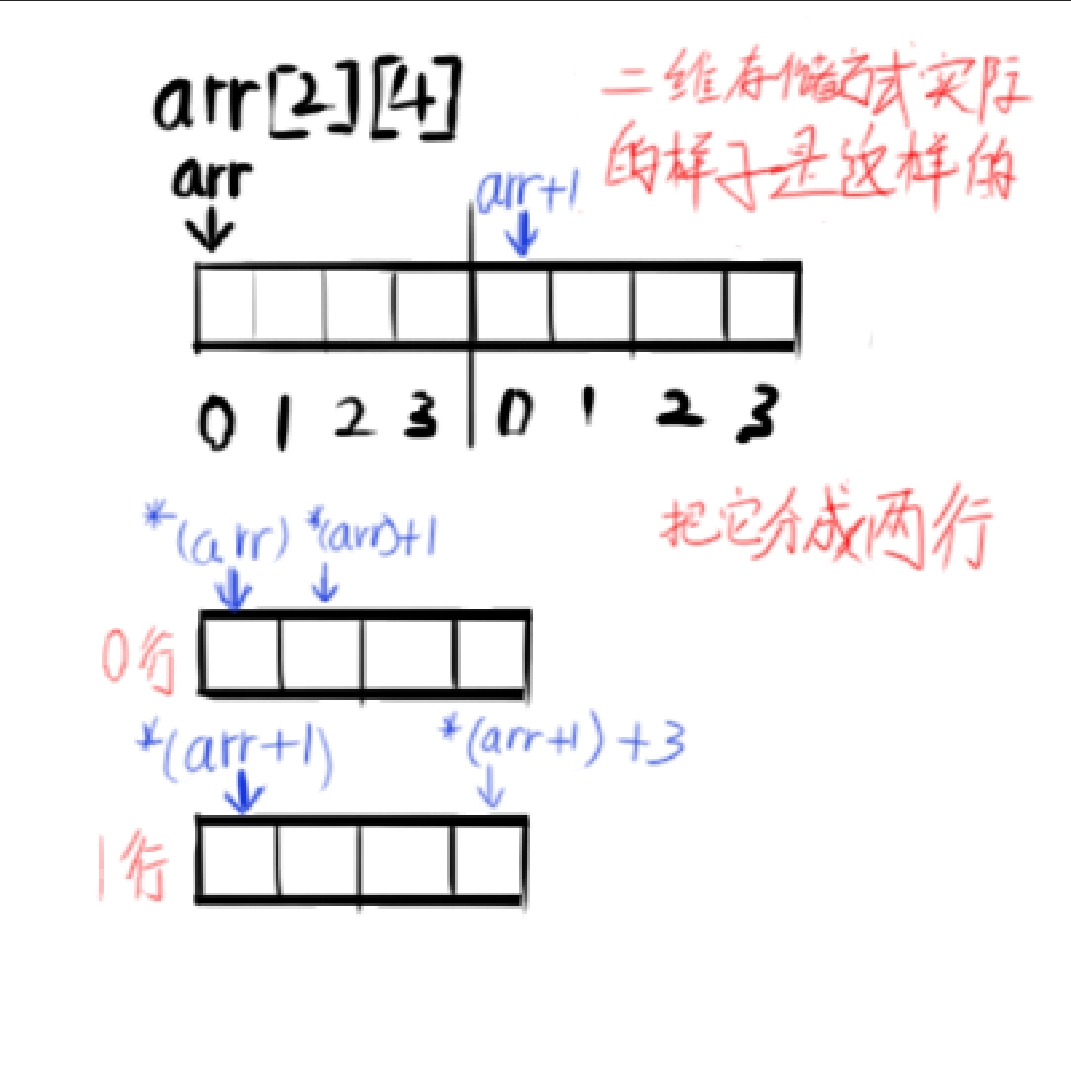 arr[2][4]
二维存储方式实际
的样子是这样的
arr
arr+1
0 1 2 3 0 1 2 3
把它分成两行
*(arr) *(arr)+1
0行
*(arr+1) *(arr+1)+3
1行